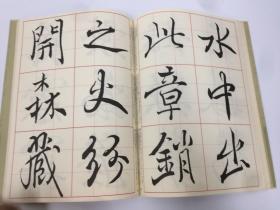 水中出
此章銷
之史
開森藏